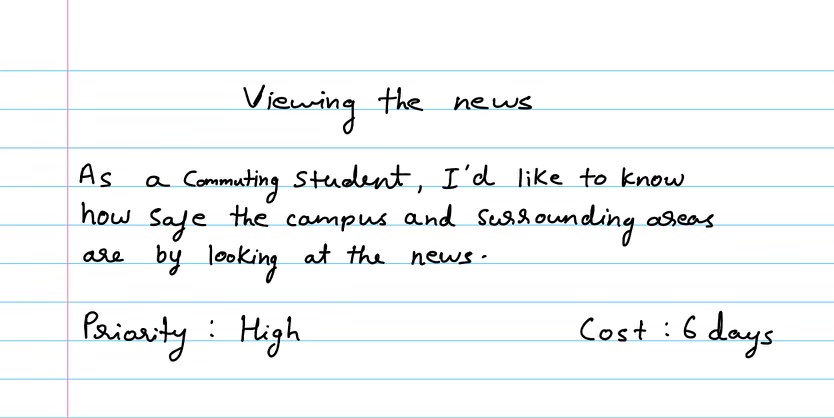 Viewing the news
As a Commuting student, I'd like to know
how safe the campus and surrounding areas
are by looking at the news.
Priority : High
Cost : 6 days